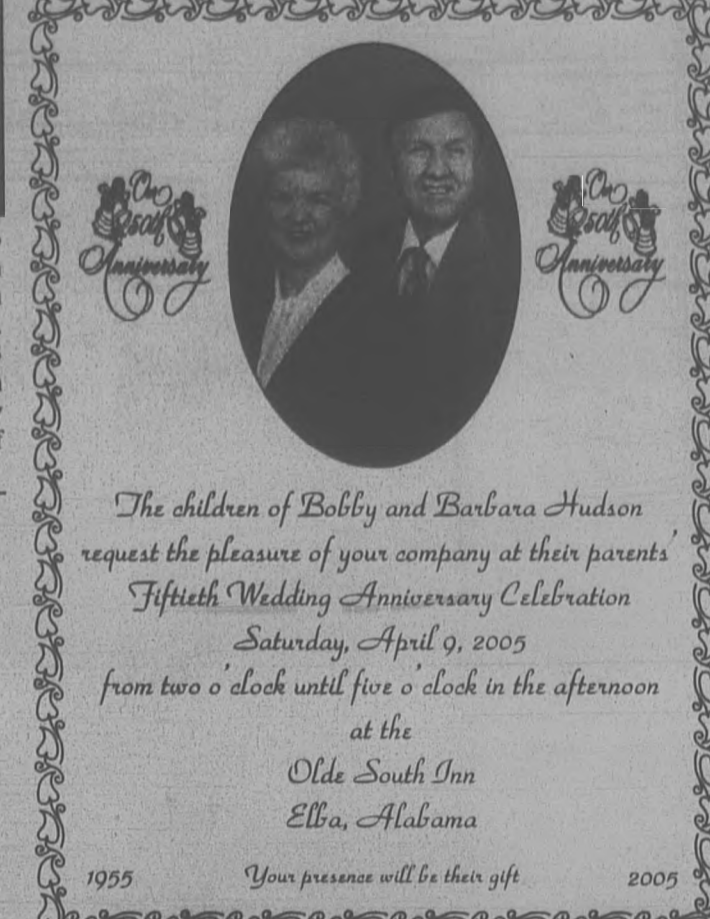 On
50th
Anniversary
On
50th
Anniversary
The children of Bobby and Barbara Hudson
request the pleasure of your company at their parents'
Fiftieth Wedding Anniversary Celebration
Saturday, April 9, 2005
from two o'clock until five o'clock in the afternoon
at the
Olde South Inn
Elba, Alabama
1955 Your presence will be their gift 2005